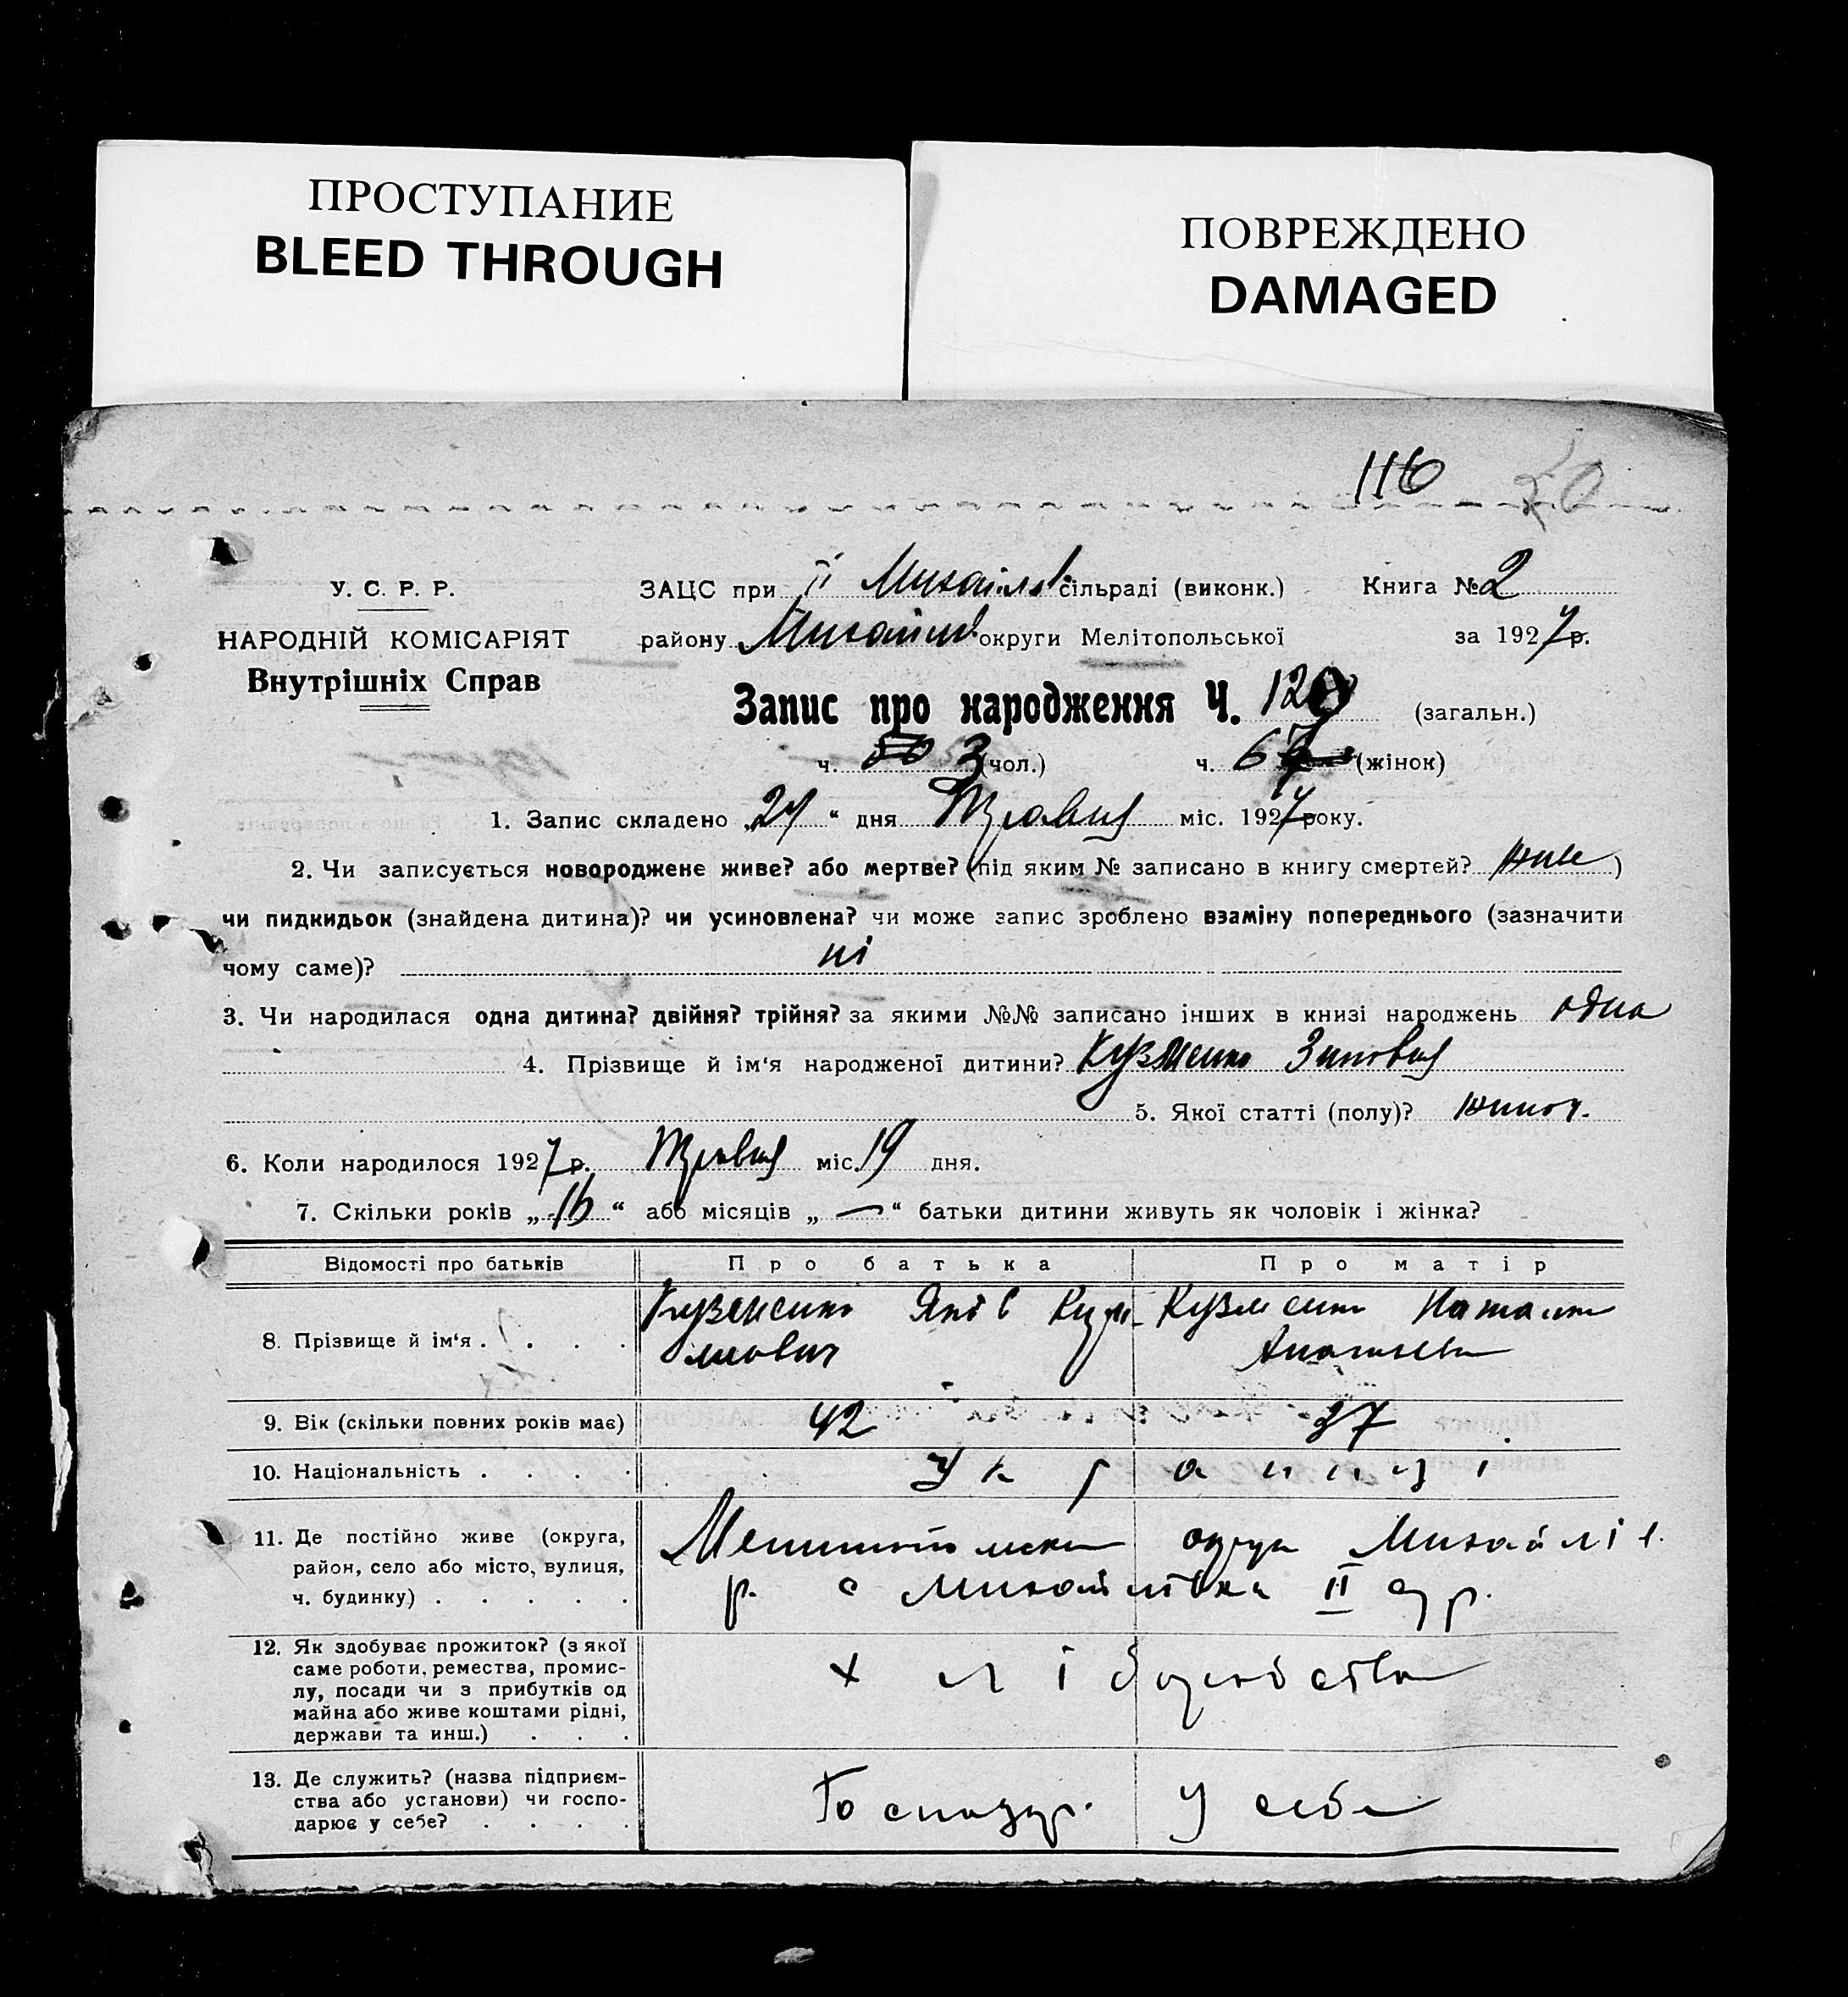 ПРОСТУПАНИЕ
BLEED THROUGH
ПОВРЕЖДЕНО
DAMAGED
116
20
У. С. Р. Р.
НАРОДНІЙ КОМІСАРІЯТ
Внутрішніх Справ
ЗАЦС при ІІ Михайлів. сільраді (виконк.) Книга № 2
району Михайлів. округи Мелітопольської за 1927 р.
Запис про народження Ч. 129 (загальн.)
ч. 3 (чол.) ч. 6 (жінок)
1. Запис складено „24“ дня Травня міс. 1927 року.
2. Чи записується новороджене живе? або мертве? (під яким № записано в книгу смертей? живе)
чи пидкидьок (знайдена дитина)? чи усиновлена? чи може запис зроблено взаміну попереднього (зазначити
чому саме)? ні
3. Чи народилася одна дитина? двійня? трійня? за якими №№ записано інших в книзі народжень одна
4. Прізвище й ім‘я народженої дитини? Кузменко Зиновия
5. Якої статті (полу)? жиноч.
6. Коли народилося 1927 р. Травня міс. 19 дня.
7. Скільки років „16“ або місяців „—“ батьки дитини живуть як чоловік і жінка?
Відомості про батьків Про батька Про матір
8. Прізвище й ім‘я . . . . Кузменко Яків Кузь- Кузменко Наталка
мович
9. Вік (скільки повних років має) 42 37
10. Національність . . . . Украинці
11. Де постійно живе (округа, район, село або місто, вулиця, ч. будинку) . . . . . Мелитопільска округа Михайлів.
р. с Михайлівка ІІ
12. Як здобуває прожиток? (з якої саме роботи, ремества, промислу, посади чи з прибутків од майна або живе коштами рідні, держави та инш.) . . . хліборобство
13. Де служить? (назва підприємства або установи) чи господарює у себе? . . . . Господар. у себе